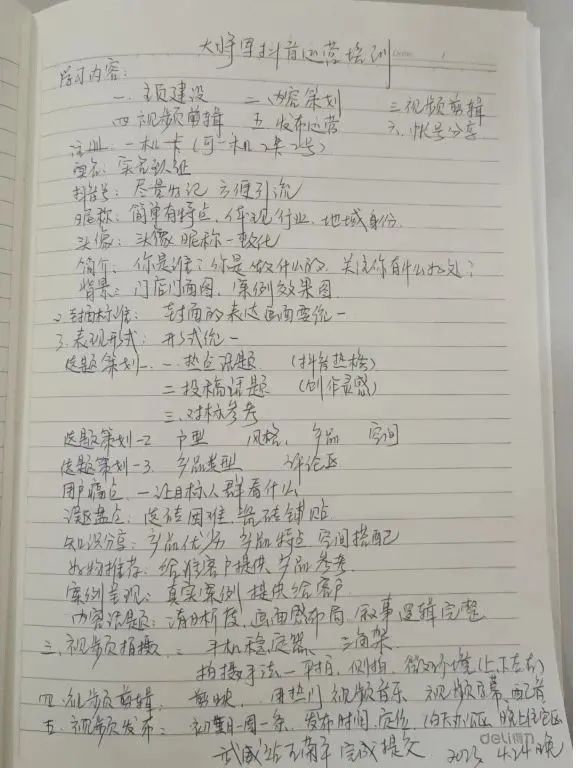 大将军抖音运营培训
学习内容:
一. 主页建设 二. 内容策划 三. 视频剪辑
四 视频剪辑 五. 发布运营 六. 帐号分享
注册: 一机一卡 (可一机2卡2号)
实名: 实名认证
抖音号: 尽量好记 方便引流
昵称: 简单有特点, 体现行业、地域身份.
头像: 头像 昵称一致化
简介: 你是谁? 你是做什么的, 关注你有什么好处?
背景: 门店门面图, 案例效果图.
2. 封面标准: 封面的表达画面要统一
3. 表现形式: 形式统一
选题策划-1. 一. 热点话题 (抖音热榜)
二. 投稿话题 (创作灵感)
三. 对标参考
选题策划-2 户型 风格, 产品 空间
选题策划-3. 产品类型 评论区
用户痛点, 一让目标人群看什么
误区盘点: 选砖困难, 瓷砖铺贴
知识分享: 产品优劣 产品特点 空间搭配
好物推荐: 给准客户提供产品参考.
案例呈现: 真实案例 提供给客户.
内容话题: 清晰度, 画面感布局、叙事逻辑完整
三. 视频拍摄: 手机稳定器 三角架.
拍摄手法一平拍, 侧拍, (上下左右)
四. 视频剪辑, 剪映. 用热门视频音乐 视频字幕, 配音
五. 视频发布: 初期一周一条, 发布时间, 定位, 白天办公区 晚上住宅区
完成提交 2023 4.24晚
delime